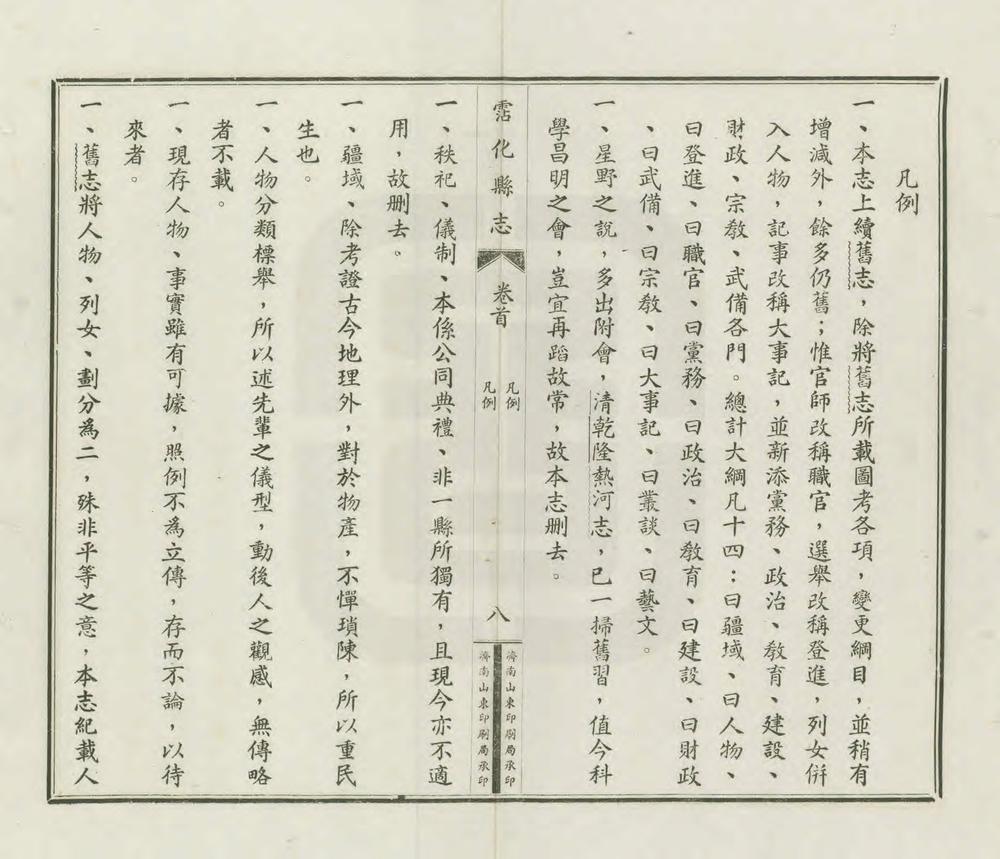 凡例
一、本志上續舊志，除將舊志所載圖考各項，變更綱目，並稍有
增減外，餘多仍舊；惟官師改稱職官，選舉改稱登進，列女併
入人物，記事改稱大事記，並新添黨務、政治、教育、建設、
財政、宗教、武備各門。總計大綱凡十四：曰疆域、曰人物、
曰登進、曰職官、曰黨務、曰政治、曰教育、曰建設、曰財政
、曰武備、曰宗教、曰大事記、曰叢談、曰藝文。
一、星野之說，多出附會，清乾隆熱河志，已一掃舊習，值今科
學昌明之會，豈宜再蹈故常，故本志刪去。
霑化縣志
卷首
凡例
凡例
八
濟南山東印刷局承印
濟南山東印刷局承印
一、秩祀、儀制、本係公同典禮、非一縣所獨有，且現今亦不適
用，故刪去。
一、疆域、除考證古今地理外，對於物產，不憚瑣陳，所以重民
生也。
一、人物分類標舉，所以述先輩之儀型，動後人之觀感，無傳略
者不載。
一、現存人物、事實雖有可據，照例不為立傳，存而不論，以待
來者。
一、舊志將人物、列女、劃分為二，殊非平等之意，本志紀載人